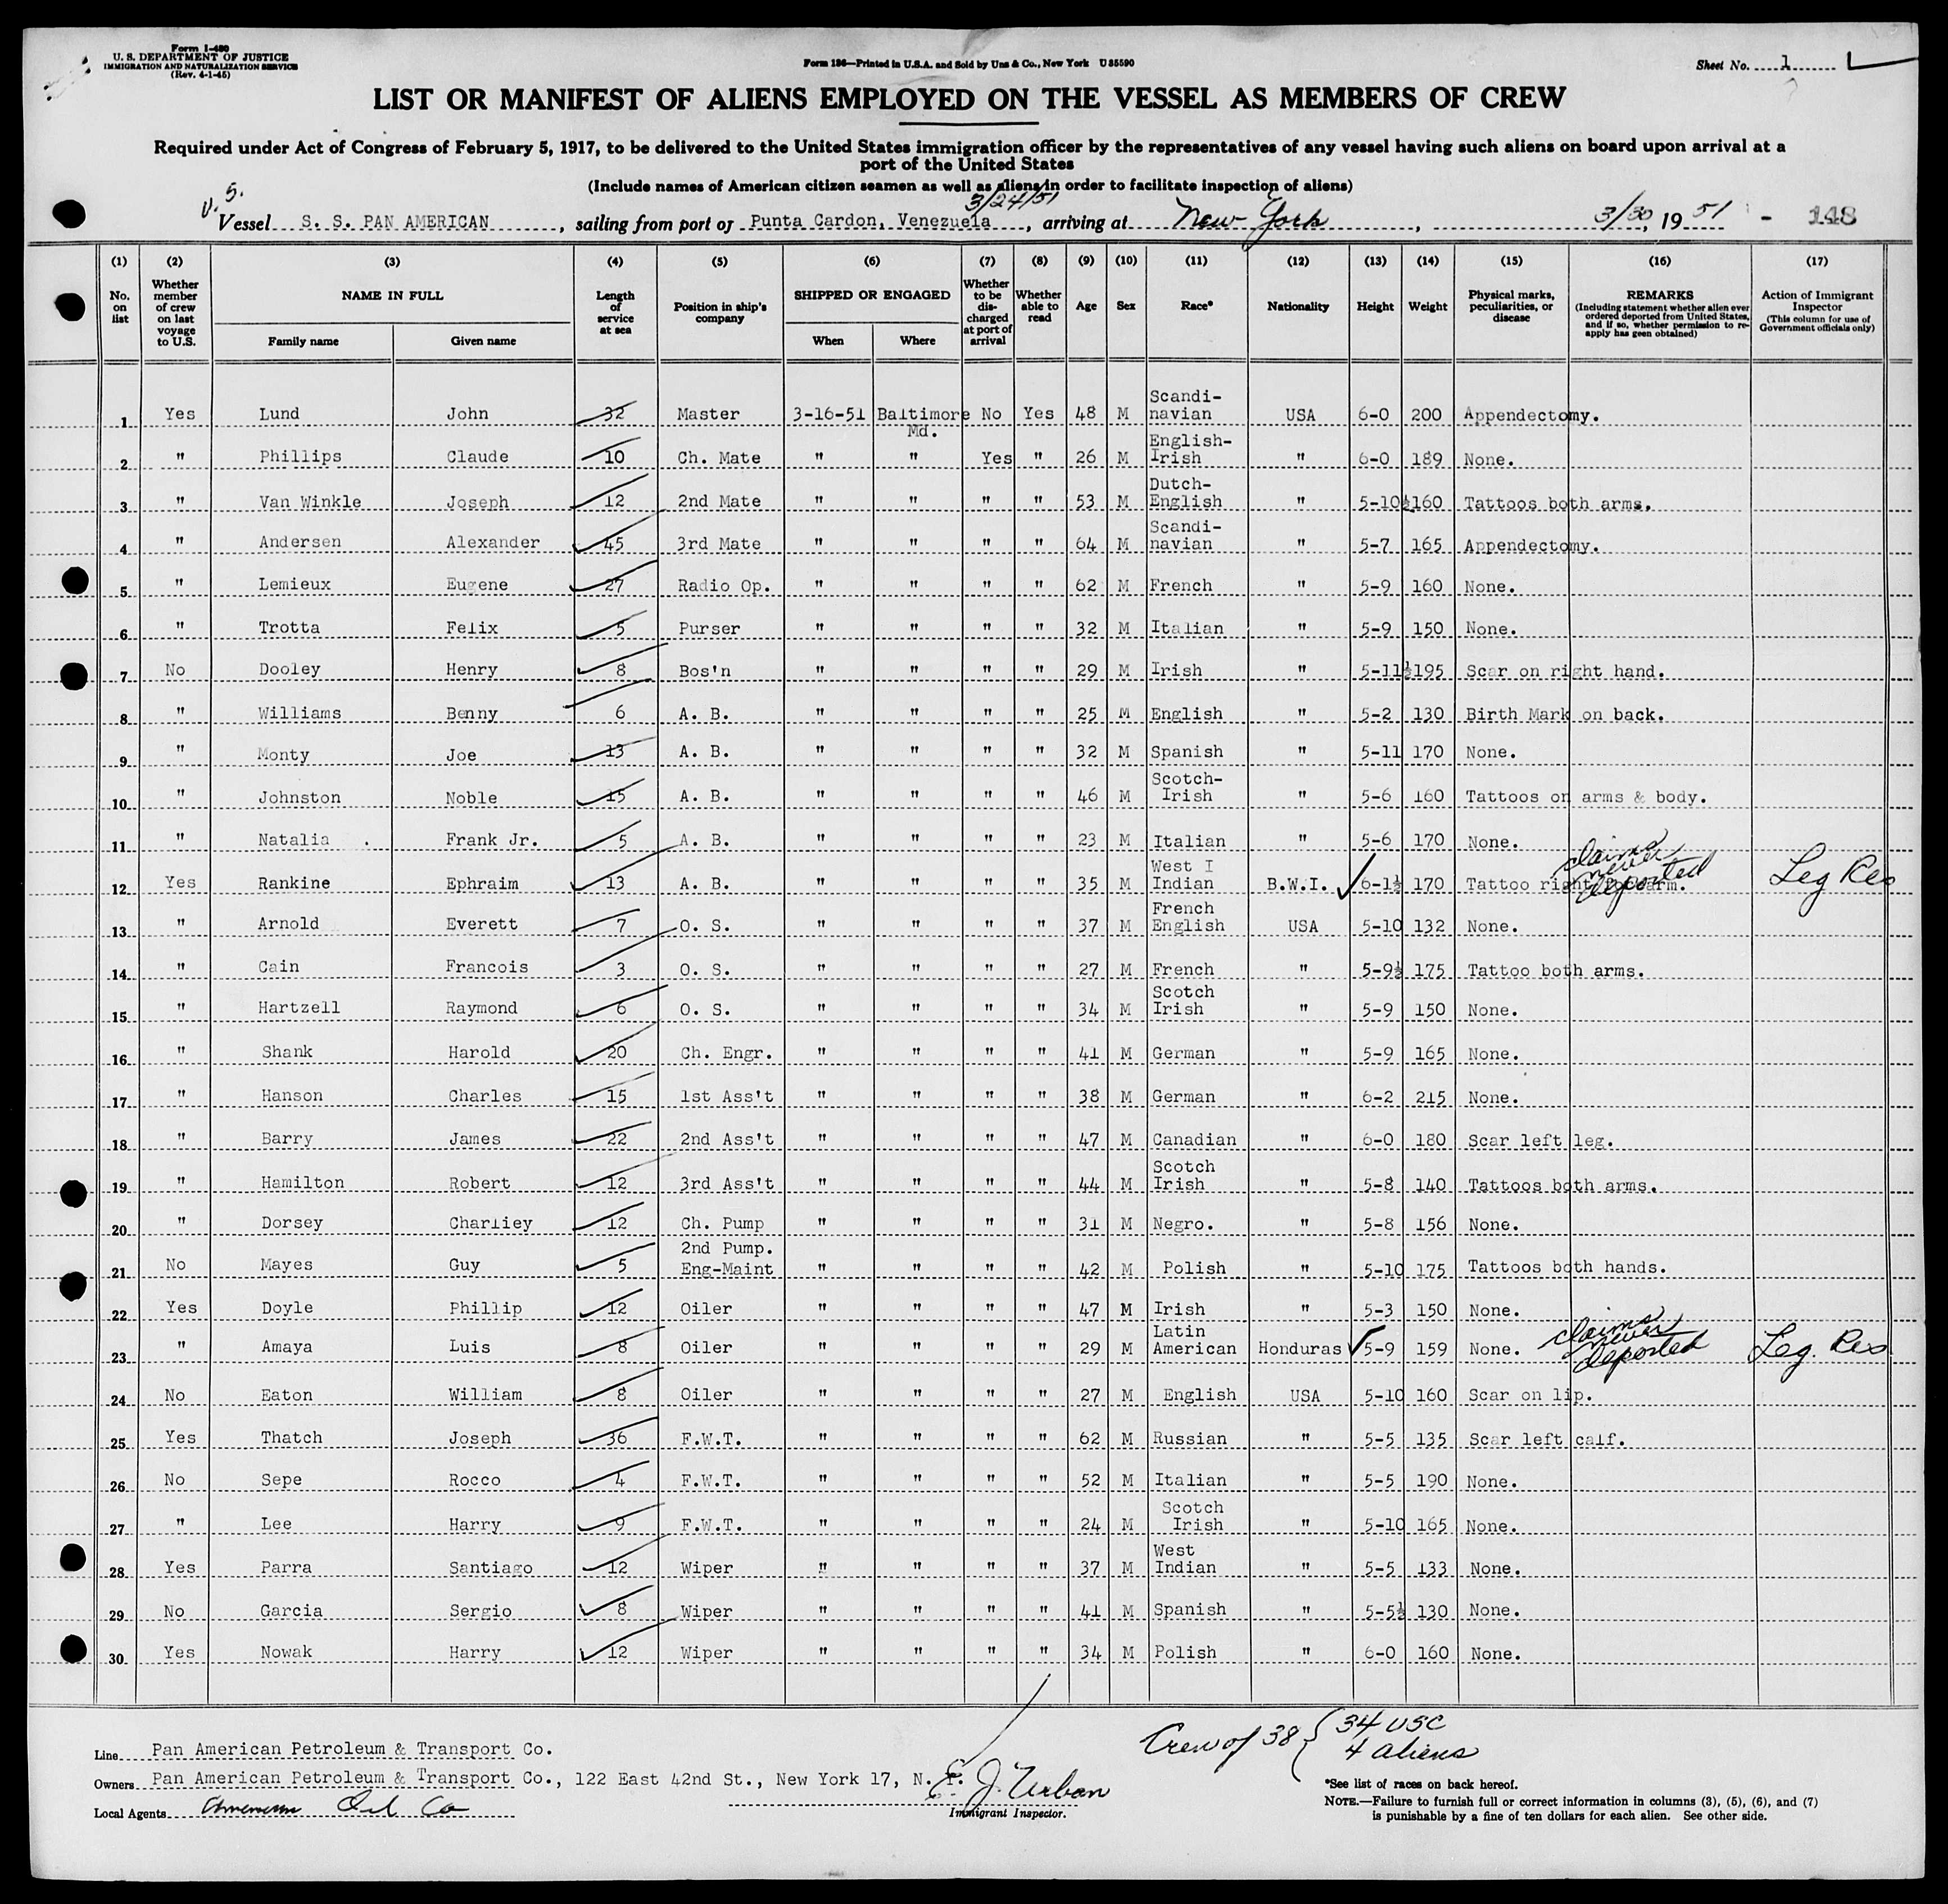 Form I-480
U. S. DEPARTMENT OF JUSTICE
IMMIGRATION AND NATURALIZATION SERVICE
(Rev. 4-1-45)
Form 136—Printed in U.S.A. and Sold by Unz & Co., New York U 85590
Sheet No. 1
LIST OR MANIFEST OF ALIENS EMPLOYED ON THE VESSEL AS MEMBERS OF CREW
Required under Act of Congress of February 5, 1917, to be delivered to the United States immigration officer by the representatives of any vessel having such aliens on board upon arrival at a
port of the United States
(Include names of American citizen seamen as well as aliens in order to facilitate inspection of aliens)
U.S. 3/24/51
Vessel S. S. PAN AMERICAN, sailing from port of Punta Cardon, Venezuela, arriving at New York, 3/30, 19 51 - 148
(1) (2) (3) (4) (5) (6) (7) (8) (9) (10) (11) (12) (13) (14) (15) (16) (17)
No. on list Whether member of crew on last voyage to U.S. NAME IN FULL Family name Given name Length of service at sea Position in ship's company SHIPPED OR ENGAGED When Where Whether to be discharged at port of arrival Whether able to read Age Sex Race* Nationality Height Weight Physical marks, peculiarities, or disease REMARKS (Including statement whether alien ever ordered deported from United States, and if so, whether permission to re-apply has geen obtained) Action of Immigrant Inspector (This column for use of Government officials only)
1 Yes Lund John 32 Master 3-16-51 Baltimore Md. No Yes 48 M Scandi-navian USA 6-0 200 Appendectomy.
2 " Phillips Claude 10 Ch. Mate " " Yes " 26 M English-Irish " 6-0 189 None.
3 " Van Winkle Joseph 12 2nd Mate " " " " 53 M Dutch-English " 5-10½ 160 Tattoos both arms.
4 " Andersen Alexander 45 3rd Mate " " " " 64 M Scandi-navian " 5-7 165 Appendectomy.
5 " Lemieux Eugene 27 Radio Op. " " " " 62 M French " 5-9 160 None.
6 " Trotta Felix 5 Purser " " " " 32 M Italian " 5-9 150 None.
7 No Dooley Henry 8 Bos'n " " " " 29 M Irish " 5-11½ 195 Scar on right hand.
8 " Williams Benny 6 A. B. " " " " 25 M English " 5-2 130 Birth Mark on back.
9 " Monty Joe 13 A. B. " " " " 32 M Spanish " 5-11 170 None.
10 " Johnston Noble 15 A. B. " " " " 46 M Scotch-Irish " 5-6 160 Tattoos on arms & body.
11 " Natalia . Frank Jr. 5 A. B. " " " " 23 M Italian " 5-6 170 None.
12 Yes Rankine Ephraim 13 A. B. " " " " 35 M West I Indian B.W.I. 6-1½ 170 Tattoo right forearm. claims never deported Leg Res
13 " Arnold Everett 7 O. S. " " " " 37 M French English USA 5-10 132 None.
14 " Cain Francois 3 O. S. " " " " 27 M French " 5-9½ 175 Tattoo both arms.
15 " Hartzell Raymond 6 O. S. " " " " 34 M Scotch Irish " 5-9 150 None.
16 " Shank Harold 20 Ch. Engr. " " " " 41 M German " 5-9 165 None.
17 " Hanson Charles 15 1st Ass't " " " " 38 M German " 6-2 215 None.
18 " Barry James 22 2nd Ass't " " " " 47 M Canadian " 6-0 180 Scar left leg.
19 " Hamilton Robert 12 3rd Ass't " " " " 44 M Scotch Irish " 5-8 140 Tattoos both arms.
20 " Dorsey Charliey 12 Ch. Pump " " " " 31 M Negro. " 5-8 156 None.
21 No Mayes Guy 5 2nd Pump. Eng-Maint " " " " 42 M Polish " 5-10 175 Tattoos both hands.
22 Yes Doyle Phillip 12 Oiler " " " " 47 M Irish " 5-3 150 None.
23 " Amaya Luis 8 Oiler " " " " 29 M Latin American Honduras 5-9 159 None. claims never deported Leg. Res
24 No Eaton William 8 Oiler " " " " 27 M English USA 5-10 160 Scar on lip.
25 Yes Thatch Joseph 36 F.W.T. " " " " 62 M Russian " 5-5 135 Scar left calf.
26 No Sepe Rocco 4 F.W.T. " " " " 52 M Italian " 5-5 190 None.
27 " Lee Harry 9 F.W.T. " " " " 24 M Scotch Irish " 5-10 165 None.
28 Yes Parra Santiago 12 Wiper " " " " 37 M West Indian " 5-5 133 None.
29 No Garcia Sergio 8 Wiper " " " " 41 M Spanish " 5-5½ 130 None.
30 Yes Nowak Harry 12 Wiper " " " " 34 M Polish " 6-0 160 None.
Crew of 38 { 34 USC
4 aliens
Line Pan American Petroleum & Transport Co.
Owners Pan American Petroleum & Transport Co., 122 East 42nd St., New York 17, N. Y.
E. J. Urban
Local Agents American Oil Co
Immigrant Inspector.
*See list of races on back hereof.
NOTE.—Failure to furnish full or correct information in columns (3), (5), (6), and (7)
is punishable by a fine of ten dollars for each alien. See other side.